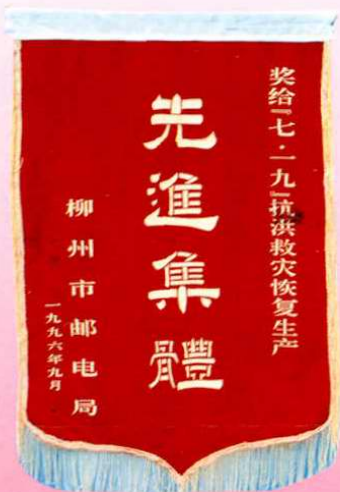 奖给“七·一九”抗洪救灾恢复生产
先進集體
柳州市邮电局
一九九六年九月